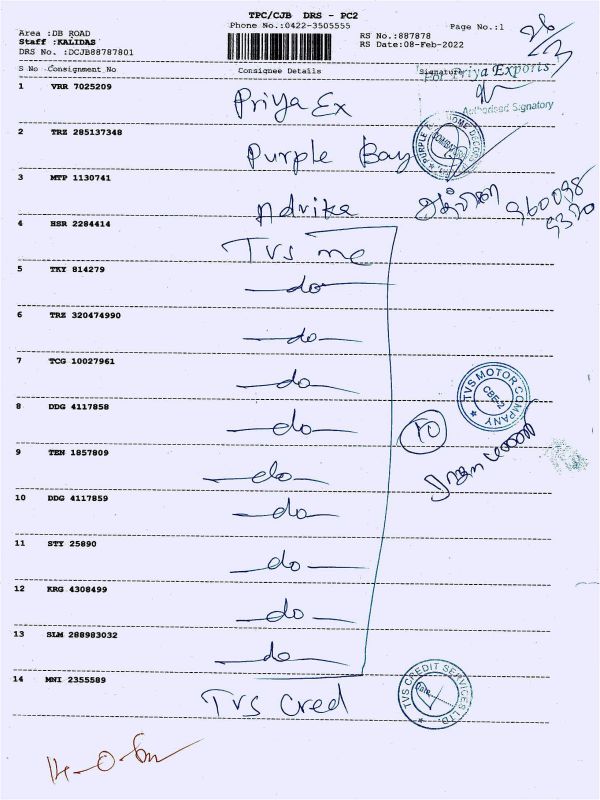 TPC/CJB DRS - PC2
Phone No.:0422-3505555
Page No.:1
Area :DB ROAD
Staff :KALIDAS
DRS No. :DCJB88787801
RS No.:887878
RS Date:08-Feb-2022
26/3
S No Consignment No Consignee Details Signature
For Priya Exports
Authorised Signatory
1 VRR 7025209 Priya Ex
2 TRZ 285137348 Purple Bay
3 MTP 1130741 Advika
4 HSR 2284414 TVS mc
5 TKY 814279 -do-
6 TRZ 320474990 -do-
7 TCG 10027961 -do-
TVS MOTOR COMPANY
CBE-2
8 DDG 4117858 -do-
10
9 TEN 1857809 -do-
10 DDG 4117859 -do-
11 STY 25890 -do-
12 KRG 4308499 -do-
13 SLM 288983032 -do-
14 MNI 2355589 TVS Cred
TVS CREDIT SERVICES LTD.